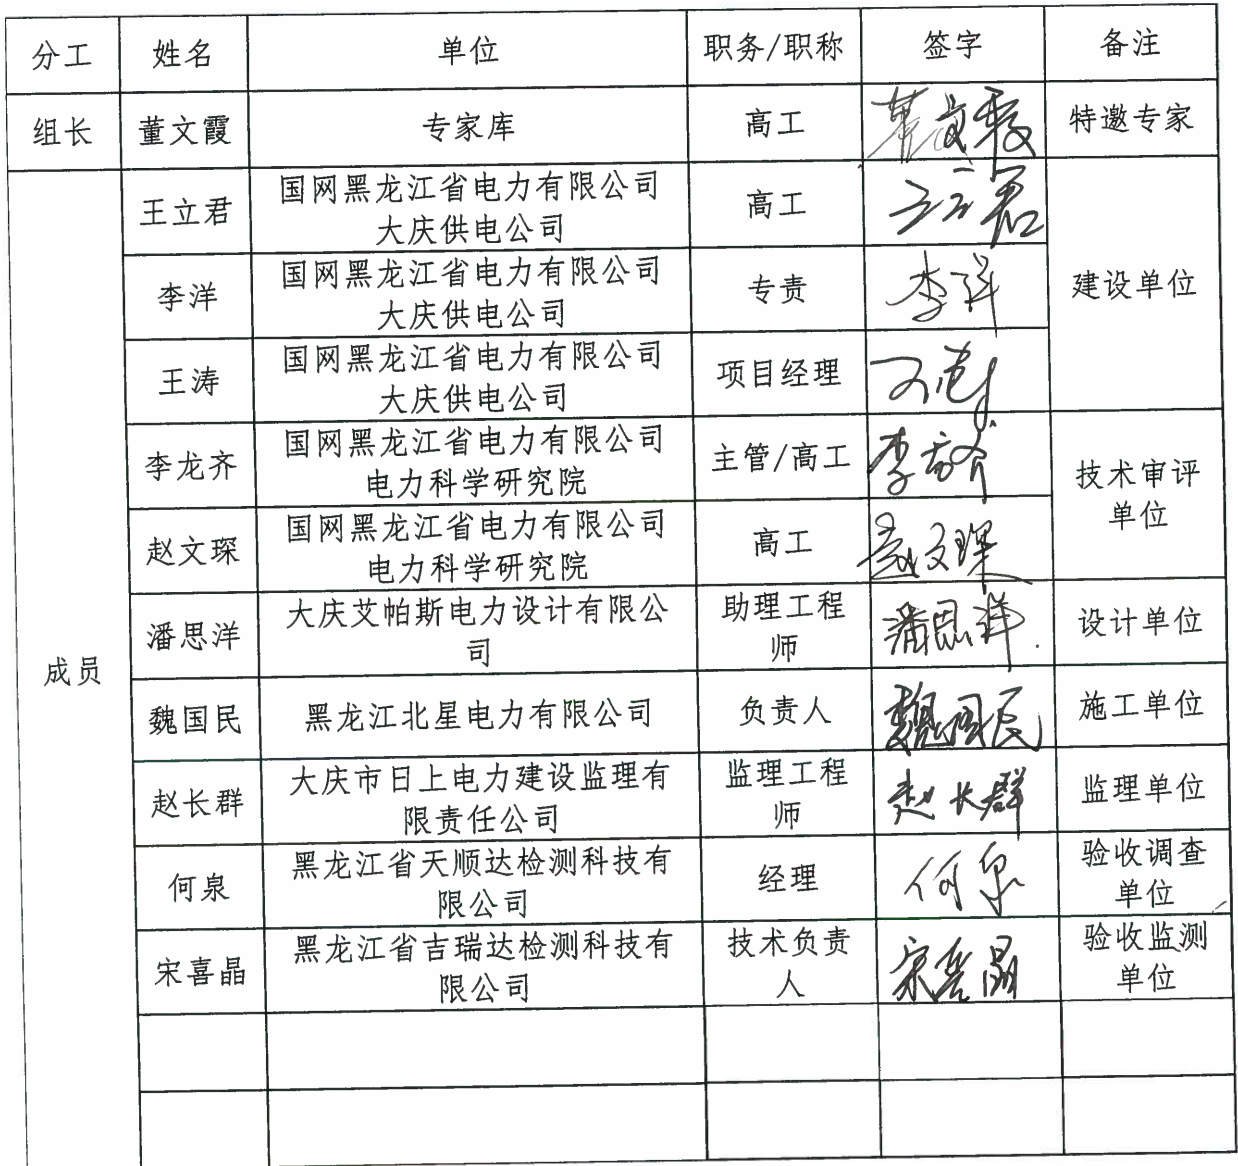 分工 姓名 单位 职务/职称 签字 备注
组长 董文霞 专家库 高工 董文霞 特邀专家
成员
王立君 国网黑龙江省电力有限公司
大庆供电公司 高工 王立君
建设单位
李洋 国网黑龙江省电力有限公司
大庆供电公司 专责 李洋
王涛 国网黑龙江省电力有限公司
大庆供电公司 项目经理 王涛
李龙齐 国网黑龙江省电力有限公司
电力科学研究院 主管/高工
技术审评
单位
赵文琛 国网黑龙江省电力有限公司
电力科学研究院 高工 赵文琛
潘思洋 大庆艾帕斯电力设计有限公
司 助理工程
师 潘思洋 设计单位
魏国民 黑龙江北星电力有限公司 负责人 魏国民 施工单位
赵长群 大庆市日上电力建设监理有
限责任公司 监理工程
师 赵长群 监理单位
何泉 黑龙江省天顺达检测科技有
限公司 经理 何泉 验收调查
单位
宋喜晶 黑龙江省吉瑞达检测科技有
限公司 技术负责
人 宋喜晶 验收监测
单位